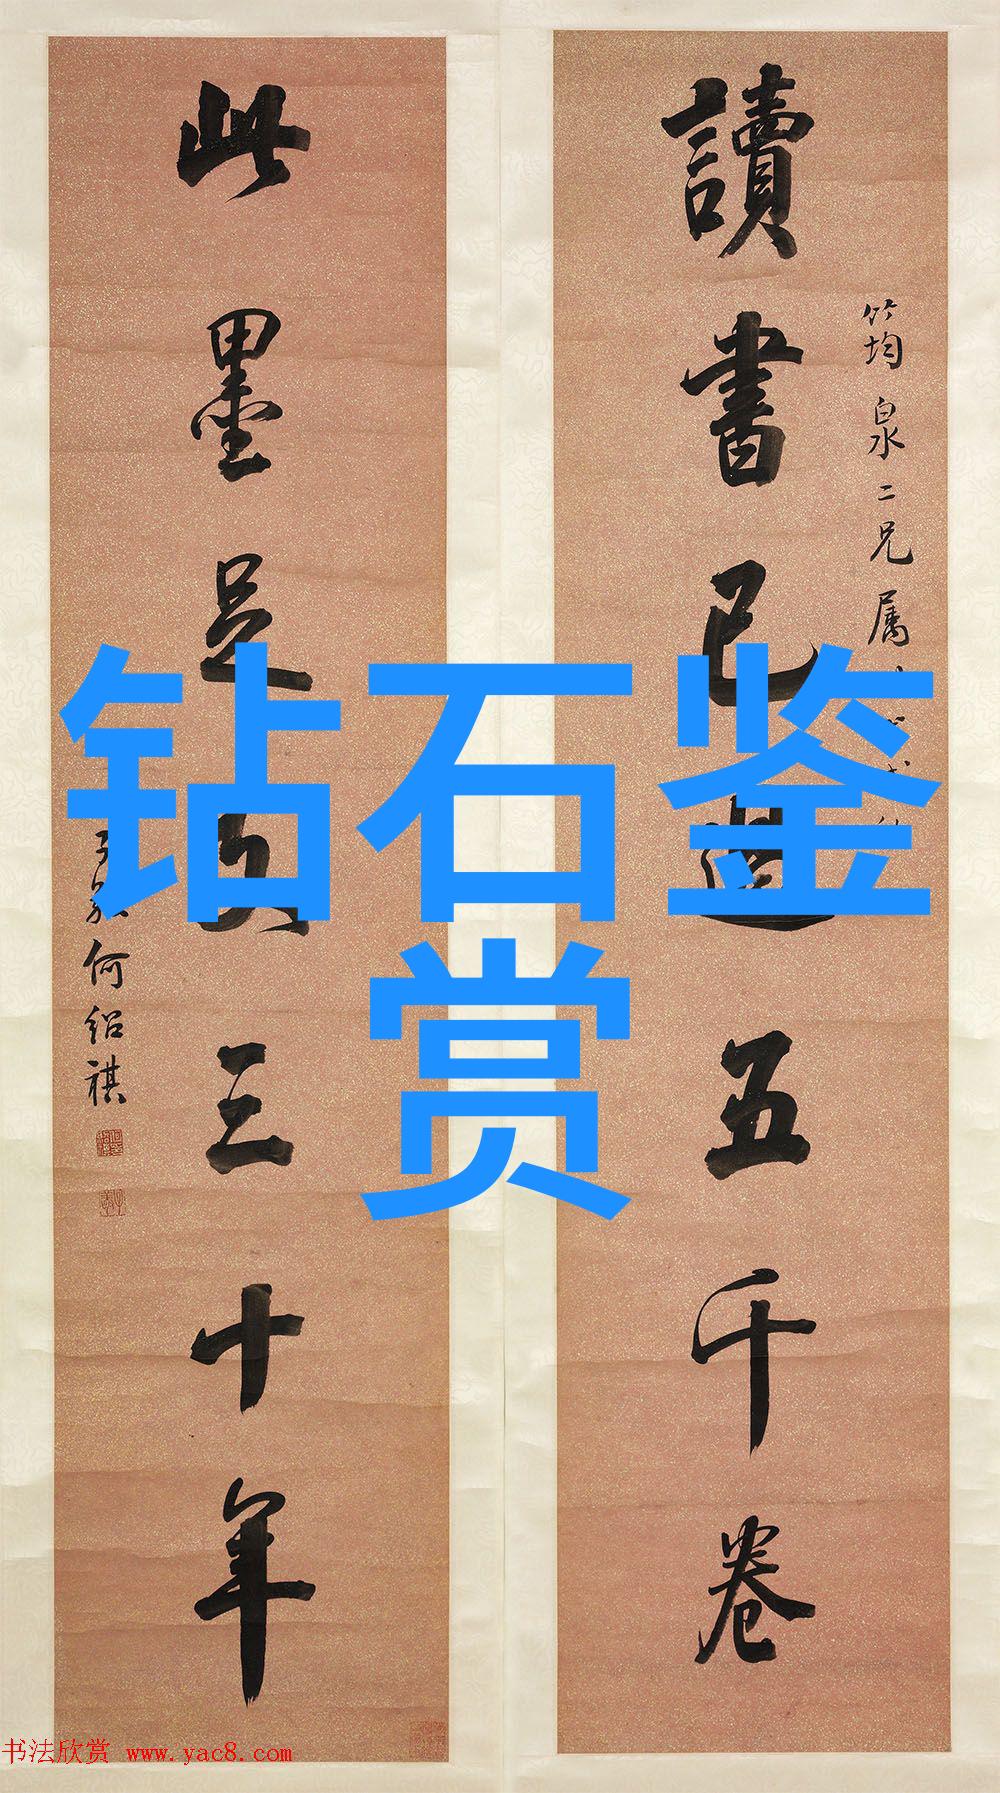 讀書已過五千卷
筠泉二兄属
此墨足支三十年
子敬何绍祺
钻石鉴
赏
书法欣赏 www.yac8.com